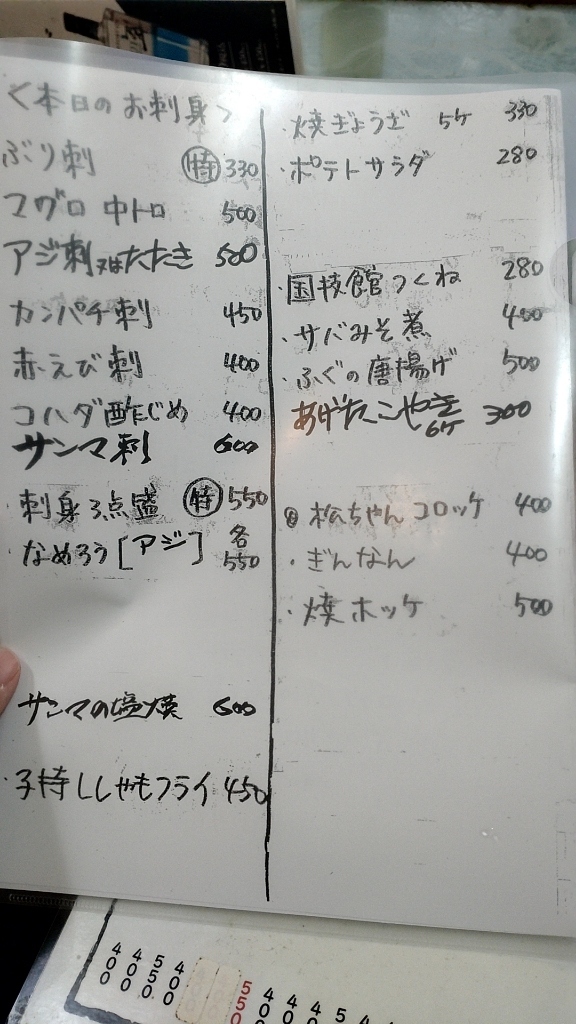 <本日のお刺身>
ぶり刺 特 330
マグロ 中トロ 500
アジ刺又はたたき 500
カンパチ刺 450
赤えび刺 400
コハダ酢じめ 400
サンマ刺 600
刺身3点盛 特 550
なめろう[アジ] 各550
サンマの塩焼 600
・子持ししゃもフライ 450
・焼ぎょうざ 5ケ 330
・ポテトサラダ 280
・国技館つくね 280
・サバみそ煮 400
・ふぐの唐揚げ 500
あげたこやき 6ケ 300
松ちゃんコロッケ 400
・ぎんなん 400
・焼ホッケ 500
400
400
550
400
550
400
400